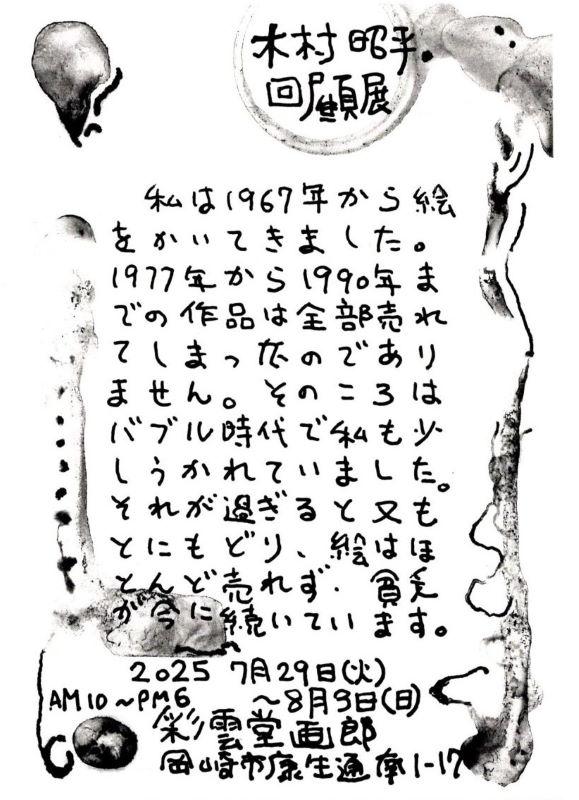 木村 昭平
回顧展
私は1967年から絵
をかいてきました。
1977年から1990年ま
での作品は全部売れ
てしまったのであり
ません。そのころは
バブル時代で私も少
しうかれていました。
それが過ぎると又も
とにもどり、絵はほ
とんど売れず、貧乏
が今に続いています。
2025 7月29日(火)
AM10～PM6 ～8月3日(日)
彩雲堂画郎
岡崎市康生通南1-17